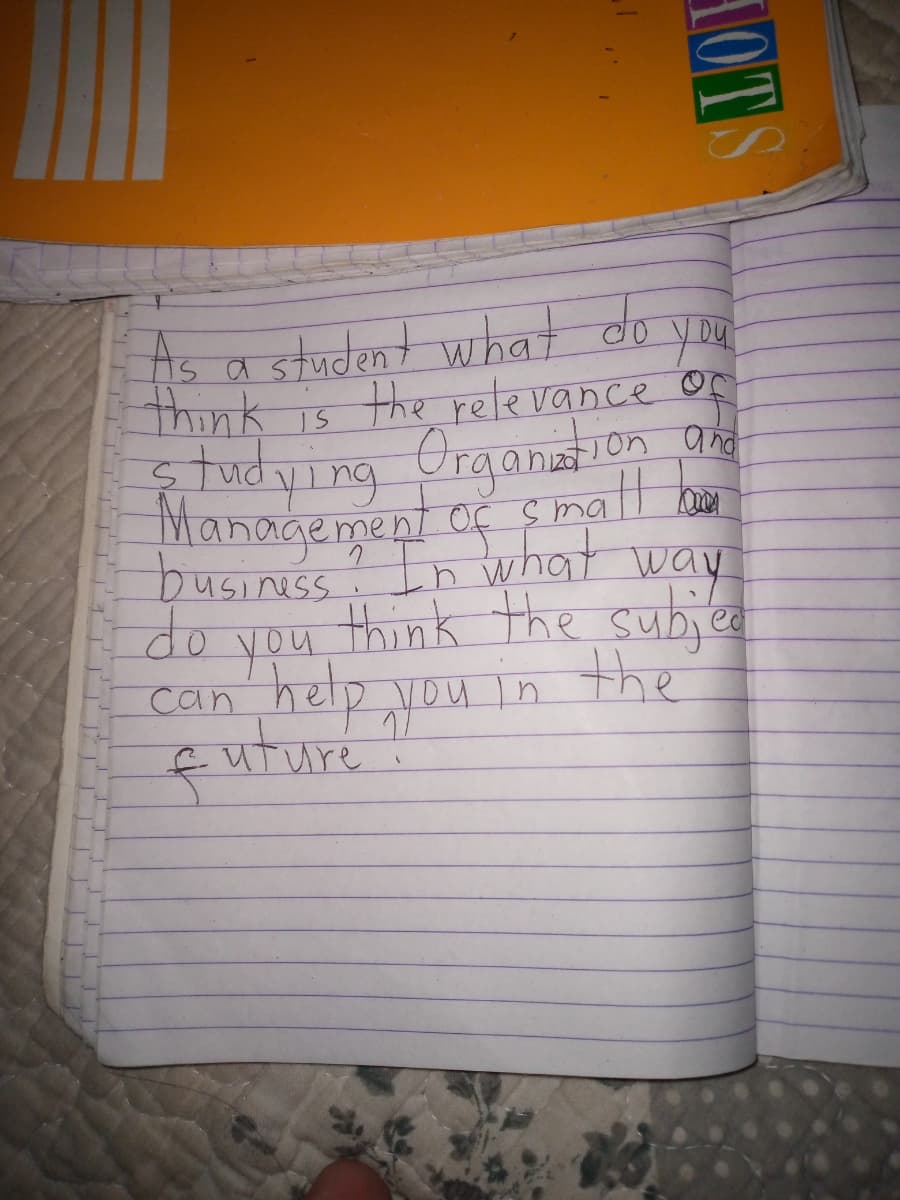 HOTS
As a student what do you
think is the relevance of
studying Organization and
Management of small
business? In what way
do you think the subject
can help you in the
future?